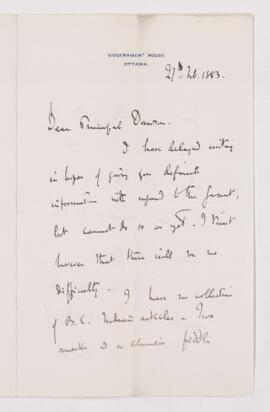 GOVERNMENT HOUSE
OTTAWA.
27th Feb. 1883.
Dear Principal Dawson.
I have delayed writing
in hopes of giving you definite
information with regard to the Grant,
but cannot do so as yet. I trust
however that there will be no
difficulty. I have no collection
of B.C. Indian articles - Two
masks & a chemin fiddle